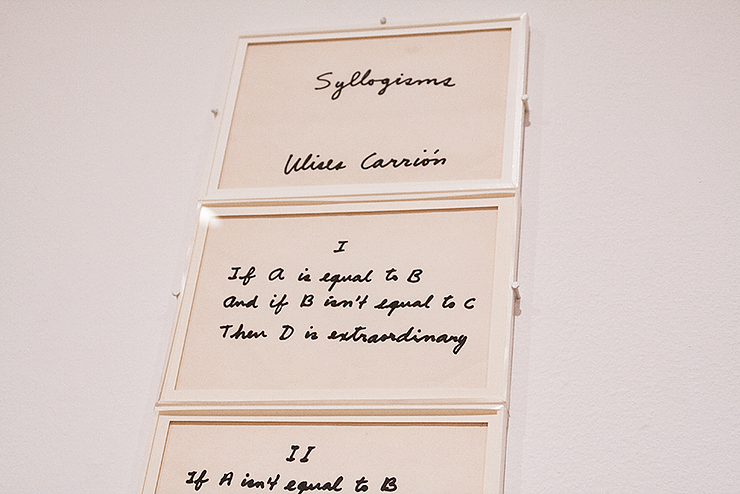 Syllogisms
Ulises Carrión
I
If A is equal to B
And if B isn't equal to C
Then D is extraordinary
II
If A isn't equal to B